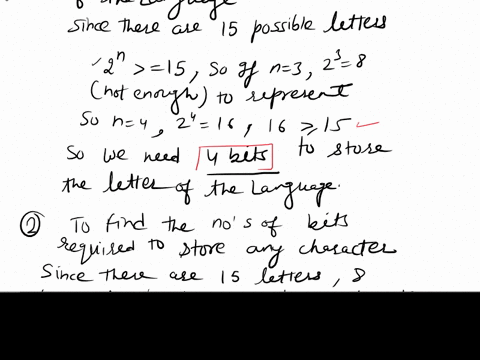 of the Language
Since there are 15 possible letters
2ⁿ >= 15, So if n=3, 2³=8
(not enough) to represent
So n=4, 2⁴=16, 16 ≥ 15 ✓
So we need 4 bits to store
the letter of the Language.
② To find the no's of bits
required to store any character
Since there are 15 letters, 8